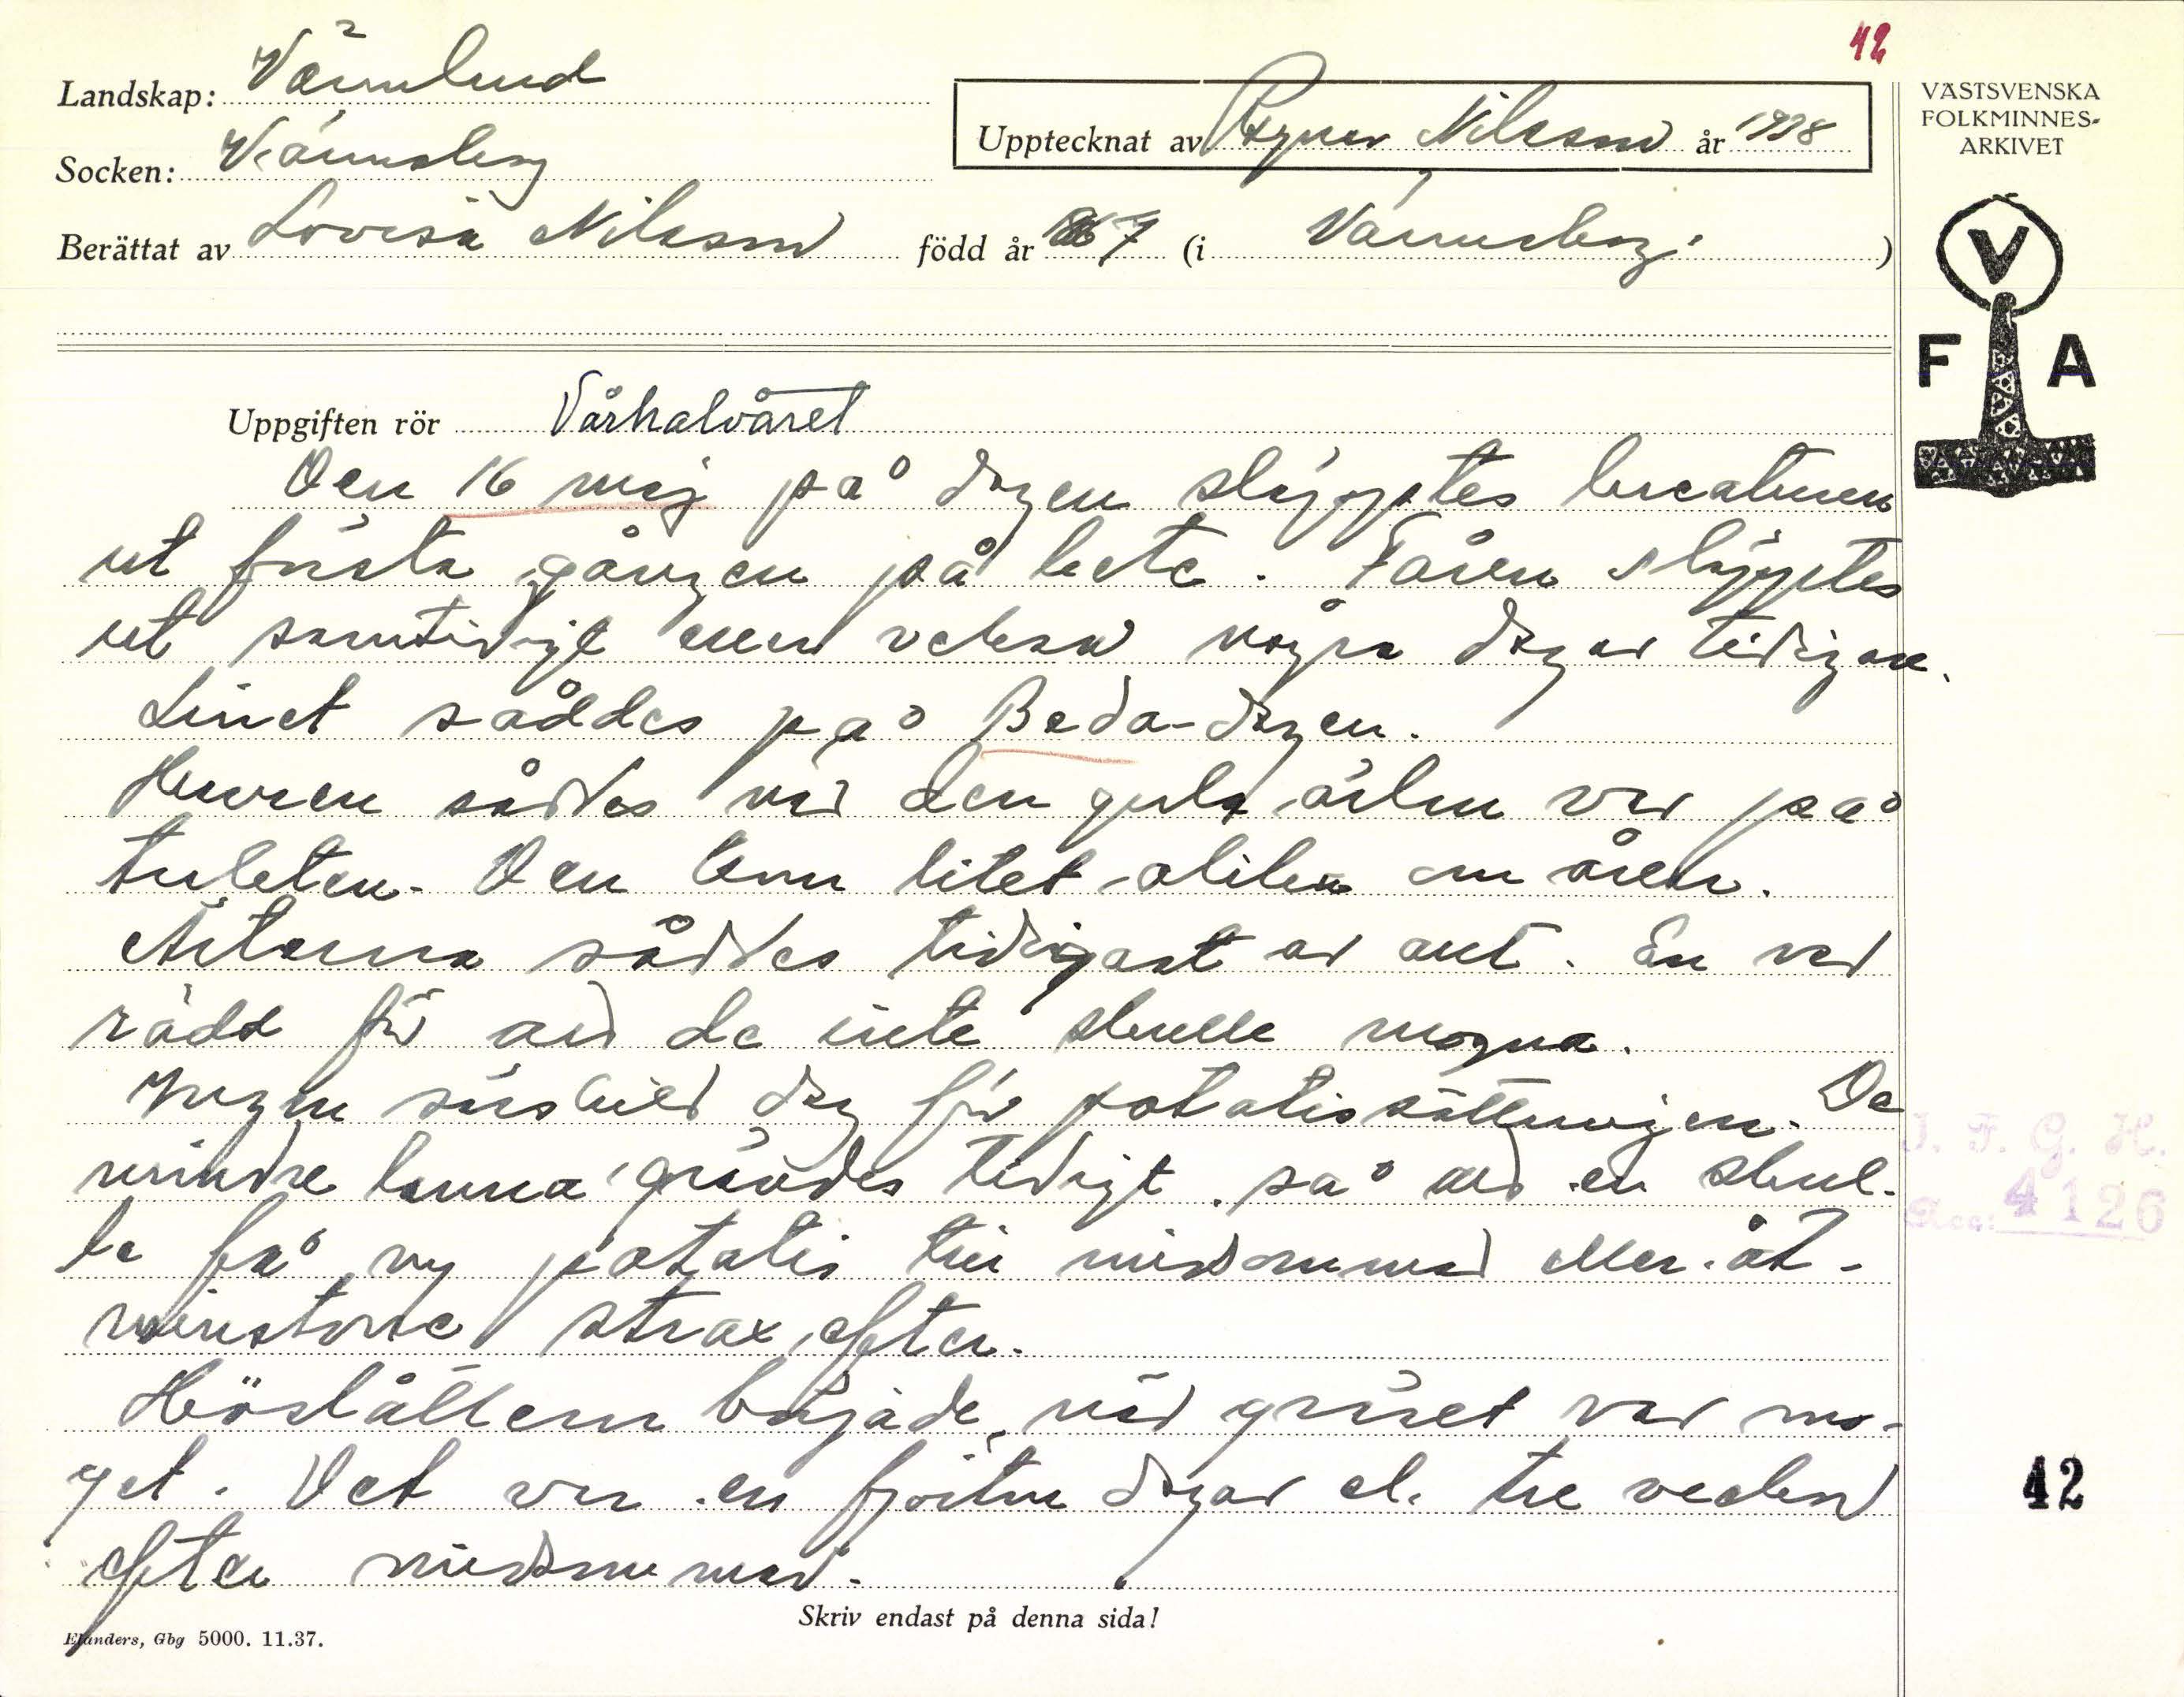 42
Landskap: Värmland
Upptecknat av Ragnar Nilsson år 1938
VÄSTSVENSKA
FOLKMINNES-
ARKIVET
Socken: Värmskog
Berättat av Lovisa Nilsson född år 1867 (i Värmskog. )
V
F A
Uppgiften rör Vårhalvåret
Den 16 maj på dagen släpptes kreaturen
ut första gången på bete. Fåren släpptes
ut samtidigt men veckan några dagar tidigare.
Linet såddes på Beda-dagen.
Havren såddes när den gula ärlan var på
tubeten. Den kom litet olika om åren.
Ärterna såddes tidigast av allt. En var
rädd för att de inte skulle mogna.
Ingen särskild dag för potatissättningen. De
mindre landa grävdes tidigt så att en skul-
le få ny potatis till midsommar eller åt-
minstone strax efter.
Höslåttern började när gräset var mo-
get. Det var en fjorton dagar el. tre veckor
efter midsommar.
I. F. G. H.
Acc: 4126
42
Skriv endast på denna sida!
Elanders, Gbg 5000. 11.37.